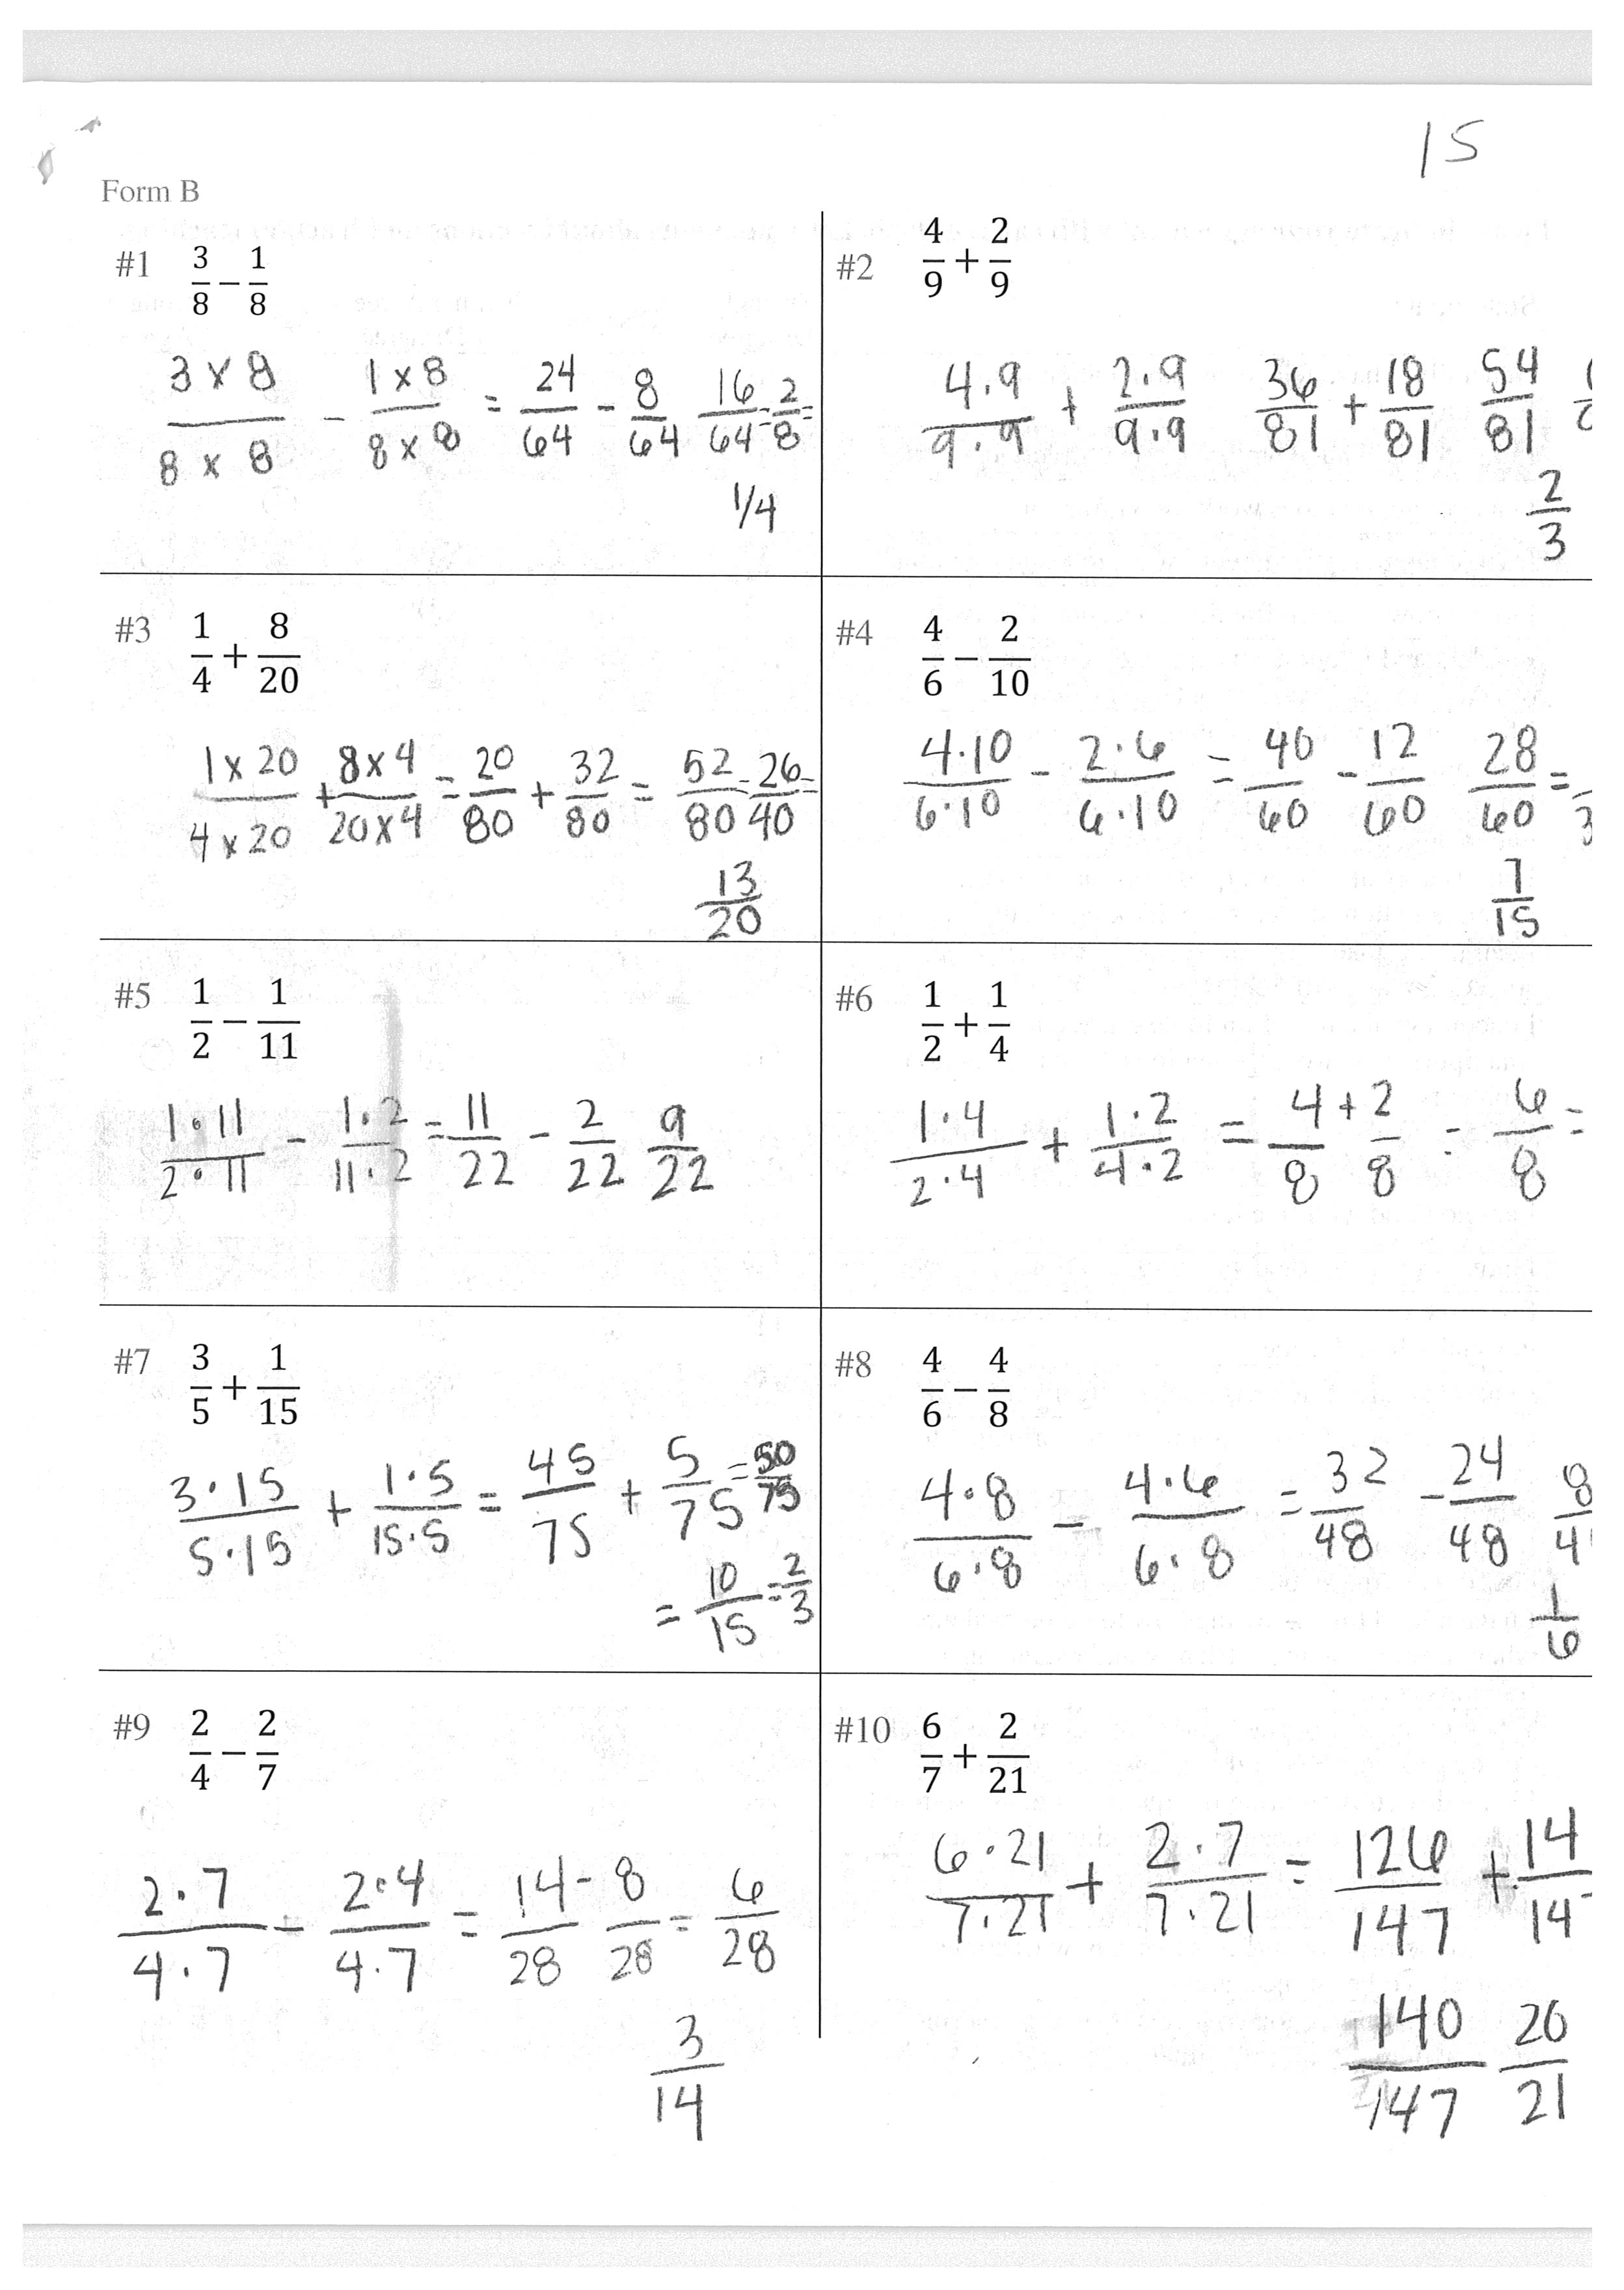 15
Form B
#1 3/8 − 1/8
3 x 8 / 8 x 8 − 1 x 8 / 8 x 8 = 24/64 − 8/64 16/64 = 2/8 =
1/4
#2 4/9 + 2/9
4·9 / 9·9 + 2·9 / 9·9 36/81 + 18/81 54/81
2/3
#3 1/4 + 8/20
1 x 20 / 4 x 20 + 8 x 4 / 20 x 4 = 20/80 + 32/80 = 52/80 = 26/40 =
13/20
#4 4/6 − 2/10
4·10 / 6·10 − 2·6 / 6·10 = 40/60 − 12/60 28/60 =
7/15
#5 1/2 − 1/11
1·11 / 2·11 − 1·2 / 11·2 = 11/22 − 2/22 9/22
#6 1/2 + 1/4
1·4 / 2·4 + 1·2 / 4·2 = 4/8 + 2/8 = 6/8 =
#7 3/5 + 1/15
3·15 / 5·15 + 1·5 / 15·5 = 45/75 + 5/75 = 50/75
= 10/15 = 2/3
#8 4/6 − 4/8
4·8 / 6·8 − 4·6 / 6·8 = 32/48 − 24/48 8/4
1/6
#9 2/4 − 2/7
2·7 / 4·7 − 2·4 / 4·7 = 14/28 − 8/28 = 6/28
3/14
#10 6/7 + 2/21
6·21 / 7·21 + 2·7 / 7·21 = 126/147 + 14/14
140/147 20/21